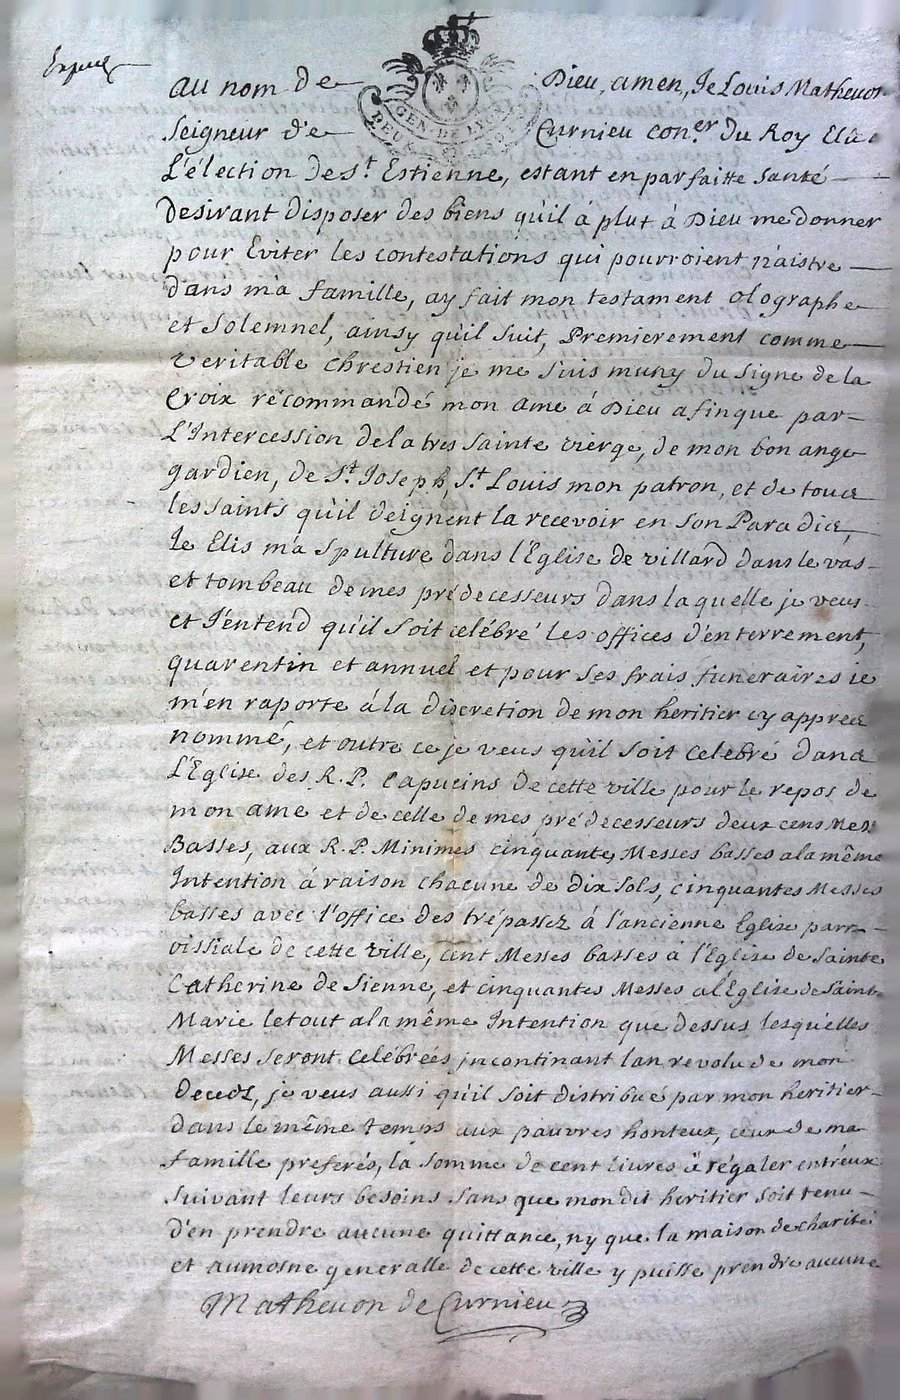 au nom de Dieu, amen, Je Louis Matheuon
GEN. DE LYON
DEUX
Seigneur de Curnieu con.er du Roy Elû
L'élection de s.t Estienne, estant en parfaitte santé
Desirant disposer des biens qu'il à plut à Dieu me donner
pour Eviter les contestations qui pourroient naistre
dans ma famille, ay fait mon testament olographe
et solemnel, ainsy qu'il suit, Premierement comme
veritable chrestien je me suis muny du signe de la
Croix recommandé mon ame à Dieu afinque par
L'Intercession de la tres sainte vierge, de mon bon ange
gardien, de s.t Joseph, s.t Louis mon patron, et de tous
les saints qu'il deignent la recevoir en son Paradis,
Je Elis ma spulture dans l'Eglise de villard dans le vas
et tombeau de mes prédecesseurs dans laquelle je veus
et J'entend qu'il soit celébré les offices d'enterrement,
quarentin et annuel et pour ses frais funeraires je
m'en raporte à la discretion de mon heritier cy apprés
nommé, et outre ce je veus qu'il soit celebré dans
L'Eglise des R. P. Capucins de cette ville pour le repos de
mon ame et de celle de mes prédecesseurs deux cens Mes
Basses, aux R. P. Minimes cinquante Messes basses a la même
Intention à raison chacune de dix sols, cinquantes Messes
basses avec l'office des trépassez à l'ancienne Eglise parr
oissiale de cette ville, cent Messes basses à l'Eglise de Sainte
Catherine de Sienne, et cinquantes Messes a l'Eglise de Sainte
Marie le tout a la même Intention que dessus lesquelles
Messes seront celébrées incontinant lan revolu de mon
deceds, je veus aussi qu'il soit distribué par mon heritier
dans le même temps aux pauvres honteux, ceux de ma
famille preferés, la somme de cent livres à régaler entréux
suivant leurs besoins sans que mon dit heritier soit tenu
d'en prendre aucune quittance, ny que la maison de charité
et aumosne generalle de cette ville y puisse prendre aucune
Matheuon de Curnieu